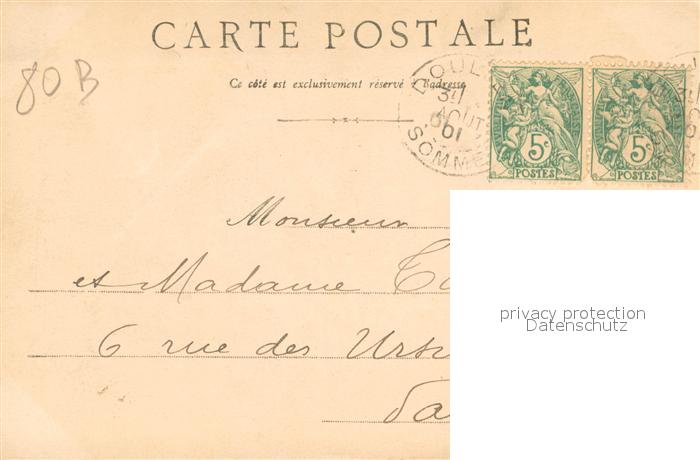 CARTE POSTALE
80 B
Ce côté est exclusivement réservé à l'adresse
DOUL
31
AOUT
01
SOMME
5c
POSTES
5c
POSTES
Monsieur
et Madame
6 rue des
privacy protection
Datenschutz